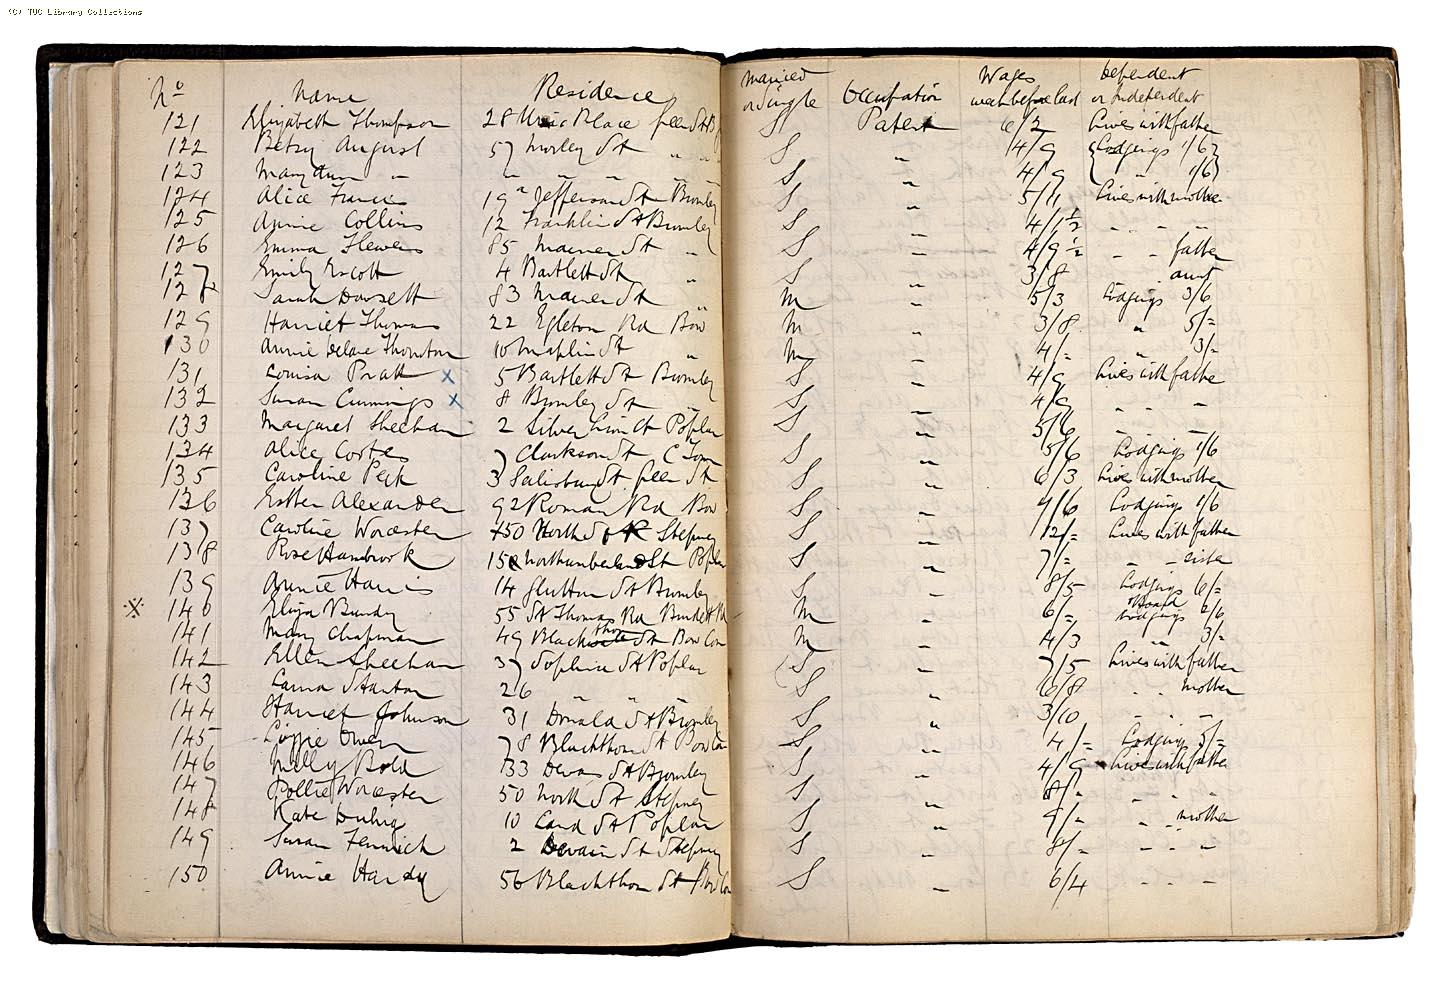 (C) TUC Library Collections
No Name Residence Married or Single Occupation Wages week before last Dependent or Independent
121 Elizabeth Thompson 28 Place Green St B S Patent 6/2 Lives with father
122 Betsy August 57 Morley St " " S " 4/9 {Lodgings 1/6}
123 Mary Ann " " " " " S " 4/9 { " 1/6}
124 Alice Francis 19 Jefferson St Bromley S " 5/11 Lives with mother
125 Annie Collins 12 Franklin St Bromley S " 4/1½ " " "
126 Emma Flewers 85 St " S " 4/9½ " " father
127 Emily Escott 4 Bartlett St " S " 3/8 " " aunt
128 Sarah Dorsett 83 St " M " 5/3 Lodgings 3/6
129 Harriet Thomas 22 Egleton Rd Bow M " 3/8 " 5/=
130 Annie Thornton 10 Maplin St " M " 4/= " 3/=
131 Louisa Pratt x 5 Bartlett St Bromley S " 4/9 Lives with father
132 Susan Cummings x 8 Bromley St " S " 4/9 " " "
133 Margaret Sheehan 2 Silver Lion Ct Poplar S " 5/6 " " "
134 Alice Cortes 7 Clarkson St C Town S " 5/6 Lodgings 1/6
135 Caroline Peck 3 Salisbury St Green St S " 6/3 Lives with mother
136 Esther Alexander 92 Roman Rd Bow S " 4/6 Lodgings 1/6
137 Caroline Worcester 50 North St Stepney S " 12/= Lives with father
138 Rose Hambrook 15 Northumberland St Poplar S " 7/= " " sister
139 Annie Harris 14 St Bromley S " 8/5 Lodgings 6/=
Board
※ 140 Eliza Bundy 55 St Thomas Rd Burdett Rd M " 6/= Lodgings 2/6
thorn
141 Mary Chapman 49 Black St Bow Com M " 4/3 " 3/=
142 Ellen Sheehan 37 Sophia St Poplar S " 7/5 Lives with father
143 Laura Stanton 26 " " " S " 6/8 " " mother
144 Harriet Johnson 31 Donald St Bromley S " 3/10 " " "
145 Lizzie Owen 78 Blackthorn St Bow Com S " 4/= Lodgings 5/=
146 Milly Bold 33 Devas St Bromley S " 4/9 Lives with father
147 Pollie Worcester 50 North St Stepney S " 8/= " " "
148 Kate 10 St Poplar S " 9/= " " mother
149 Susan Fennick 2 St Stepney S " 8/= " " "
150 Annie Hardy 56 Blackthorn St Bow Com S " 6/4 " " "